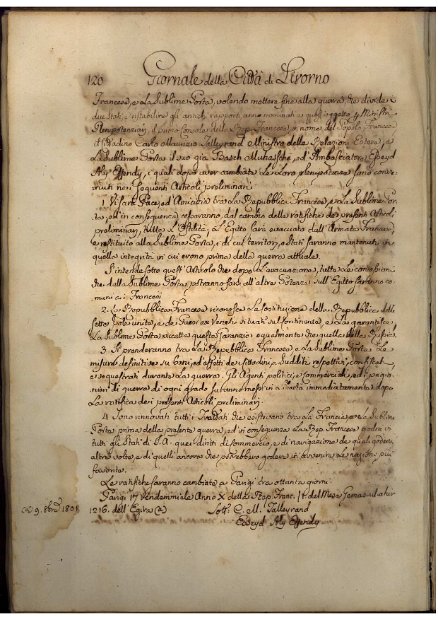 120 Giornale della Città di Livorno
Francese, e La Sublime Porta, volendo mettere fine alla guerra che divide i
due Stati, e ristabilire gli antichi rapporti, anno nominati a quest'oggetto p. Ministri
Plenipotenziarj, il primo Console della Rep. Francese, a nome del Popolo Francese
il Cittadino Carlo Maurizio Talleyrand Ministro delle Relazioni Estere; e
La Sublime Porta il suo già Basch Muhasebe, ed Ambasciatore Esseyd
Aly Effendy, i quali dopo aver cambiate le loro plenipotenze sono conve-
nuti nei seguenti Articoli preliminari.
1. Vi sarà Pace, ed Amicizia tra la Repubblica Francese, e la Sublime Por-
ta, ed in conseguenza cesseranno dal cambio delle ratifiche dei presenti Articoli
preliminari, tutte le Ostilità. L'Egitto sarà evacuato dall'Armata Francese,
e restituito alla Sublime Porta, i di cui territorj, e stati saranno mantenuti in
quella integrità in cui erano prima della guerra attuale.
S'intende sotto quest'Articolo che dopo la evacuazione, tutte le concessioni
che dalla Sublime Porta potranno farsi all'altre Potenze sull'Egitto saranno co-
muni ai Francesi.
2. La Repubblica Francese riconosce la costituzione della Repubblica delle
sette Isole unite, e dei Paesi ex Veneti situati sul continente, e la garantisce.
La Sublime Porta accetta questa garanzia egualmente che quella della Russia.
3. Si prenderanno tra la Repubblica Francese e la Sublime Porta le
misure definitive su beni, ed effetti dei cittadini, e sudditi respettivi, confiscati
e sequestrati durante la guerra. Gli Agenti politici, e commerciali, ed i prigio-
nieri di guerra di ogni grado saranno messi in libertà immediatamente dopo
la ratifica dei presenti Articoli preliminari.
4. Sono rinnovati tutti i Trattati che esistevano tra la Francia, e la Sublime
Porta prima della presente guerra, ed in conseguenza la Rep. Francese godrà in
tutti gli Stati di S. A. quei diritti di commercio, e di navigazione de' quali godeva
altre volte, e di quelli ancora che potrebbero godere in avvenire le nazioni più
favorite.
Le ratifiche saranno cambiate a Parigi tra ottanta giorni.
li 9. 8bre 1801 Parigi 17 Vendemmiale Anno X della Rep. Franc.
1216. dell'Egira Sott. C. M. Talleyrand
Esseyd Aly Effendy